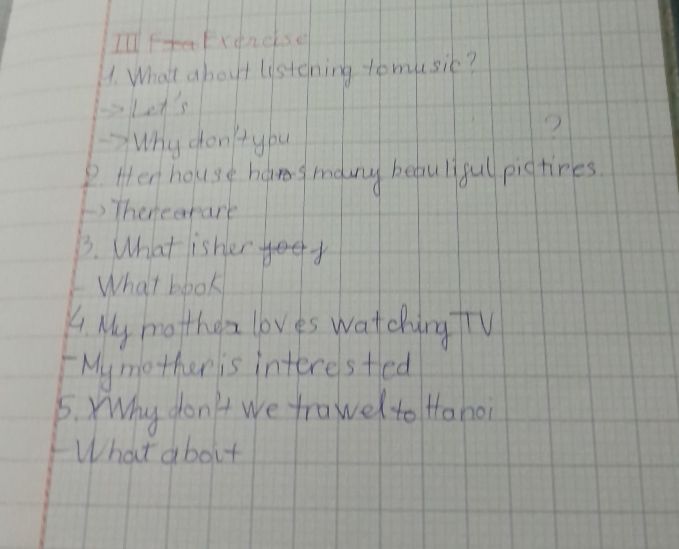 III Exercise
1. What about listening to music?
-> Let's
-> Why don't you ?
2. Her house has many beautiful pictires.
-> There are
3. What is her
- What book
4. My mother loves watching TV
- My mother is interested
5. Why don't we trawel to Hanoi
- What about